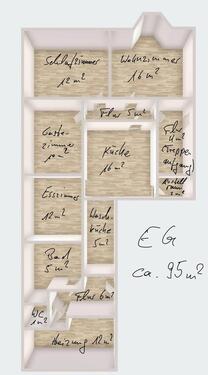 Schlafzimmer
12 m²
Wohnzimmer
16 m²
Flur 5 m²
Gäste-
zimmer
10 m²
Flur
4 m²
(Treppen
aufgang)
Küche
16 m²
2 m²
Esszimmer
12 m²
Wasch-
küche
5 m²
EG
ca. 95 m²
Bad
5 m²
WC
1 m²
Flur 6 m²
Heizung 12 m²